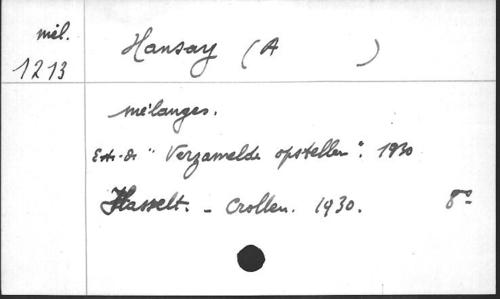 mél.
1213
Hansay (A )
Mélanges.
Extr. de "Verzamelde opstellen". 1930
Hasselt. - Crollen. 1930. 8°